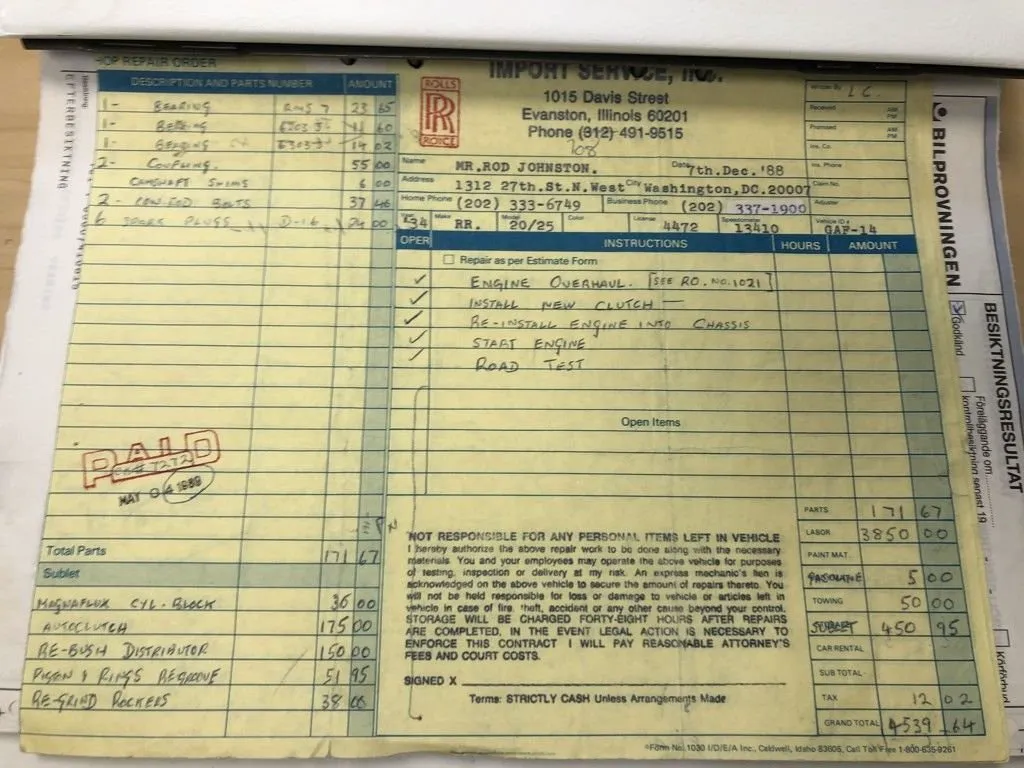 OP REPAIR ORDER
DESCRIPTION AND PARTS NUMBER AMOUNT
1- BEARING 23 65
1- BEARING 11 60
1- BEARING 14 02
2- COUPLING. 55 00
CAMSHAFT SHIMS 6 00
2- CON-ROD BOLTS 37 46
6 SPARK PLUGS D-16 24 00
PAID
MAY 04 1989
Total Parts 171 67
Sublet
MAGNAFLUX CYL. BLOCK 36 00
AUTOCLUTCH 175 00
RE-BUSH DISTRIBUTOR 150 00
PISTON & RINGS REGROOVE 51 95
RE-GRIND ROCKERS 38 00
ROLLS
RR
ROYCE
IMPORT SERVICE, INC.
1015 Davis Street
Evanston, Illinois 60201
Phone (312) 491-9515
708
Written By L.C.
Received AM PM
Promised AM PM
Ins. Co.
Ins. Phone
Claim No.
Adjuster
Name MR.ROD JOHNSTON. Date 7th.Dec.'88
Address 1312 27th.St.N.West City Washington,DC.20007
Home Phone (202) 333-6749 Business Phone (202) 337-1900
34 Make RR. Model 20/25 Color License 4472 Speedometer 13410 Vehicle ID # GAF-14
OPER INSTRUCTIONS HOURS AMOUNT
Repair as per Estimate Form
✓ ENGINE OVERHAUL. [SEE RO. NO. 1021]
✓ INSTALL NEW CLUTCH —
✓ RE-INSTALL ENGINE INTO CHASSIS
✓ START ENGINE
✓ ROAD TEST
Open Items
NOT RESPONSIBLE FOR ANY PERSONAL ITEMS LEFT IN VEHICLE
I hereby authorize the above repair work to be done along with the necessary
materials. You and your employees may operate the above vehicle for purposes
of testing, inspection or delivery at my risk. An express mechanic's lien is
acknowledged on the above vehicle to secure the amount of repairs thereto. You
will not be held responsible for loss or damage to vehicle or articles left in
vehicle in case of fire, theft, accident or any other cause beyond your control.
STORAGE WILL BE CHARGED FORTY-EIGHT HOURS AFTER REPAIRS
ARE COMPLETED. IN THE EVENT LEGAL ACTION IS NECESSARY TO
ENFORCE THIS CONTRACT I WILL PAY REASONABLE ATTORNEY'S
FEES AND COURT COSTS.
SIGNED X
Terms: STRICTLY CASH Unless Arrangements Made
PARTS 171 67
LABOR 3850 00
PAINT MAT.
GASOLINE 5 00
TOWING 50 00
SUBLET 450 95
CAR RENTAL
SUB TOTAL
TAX 12 02
GRAND TOTAL 4539 64
Form No. 1030 I/D/E/A Inc., Caldwell, Idaho 83605, Call Toll Free 1-800-635-9261
EFTERBESIKTNING
BILPROVNINGEN
BESIKTNINGSRESULTAT
Godkänd
Föreläggande om
kontrollbesiktning senast 19
Körförbud